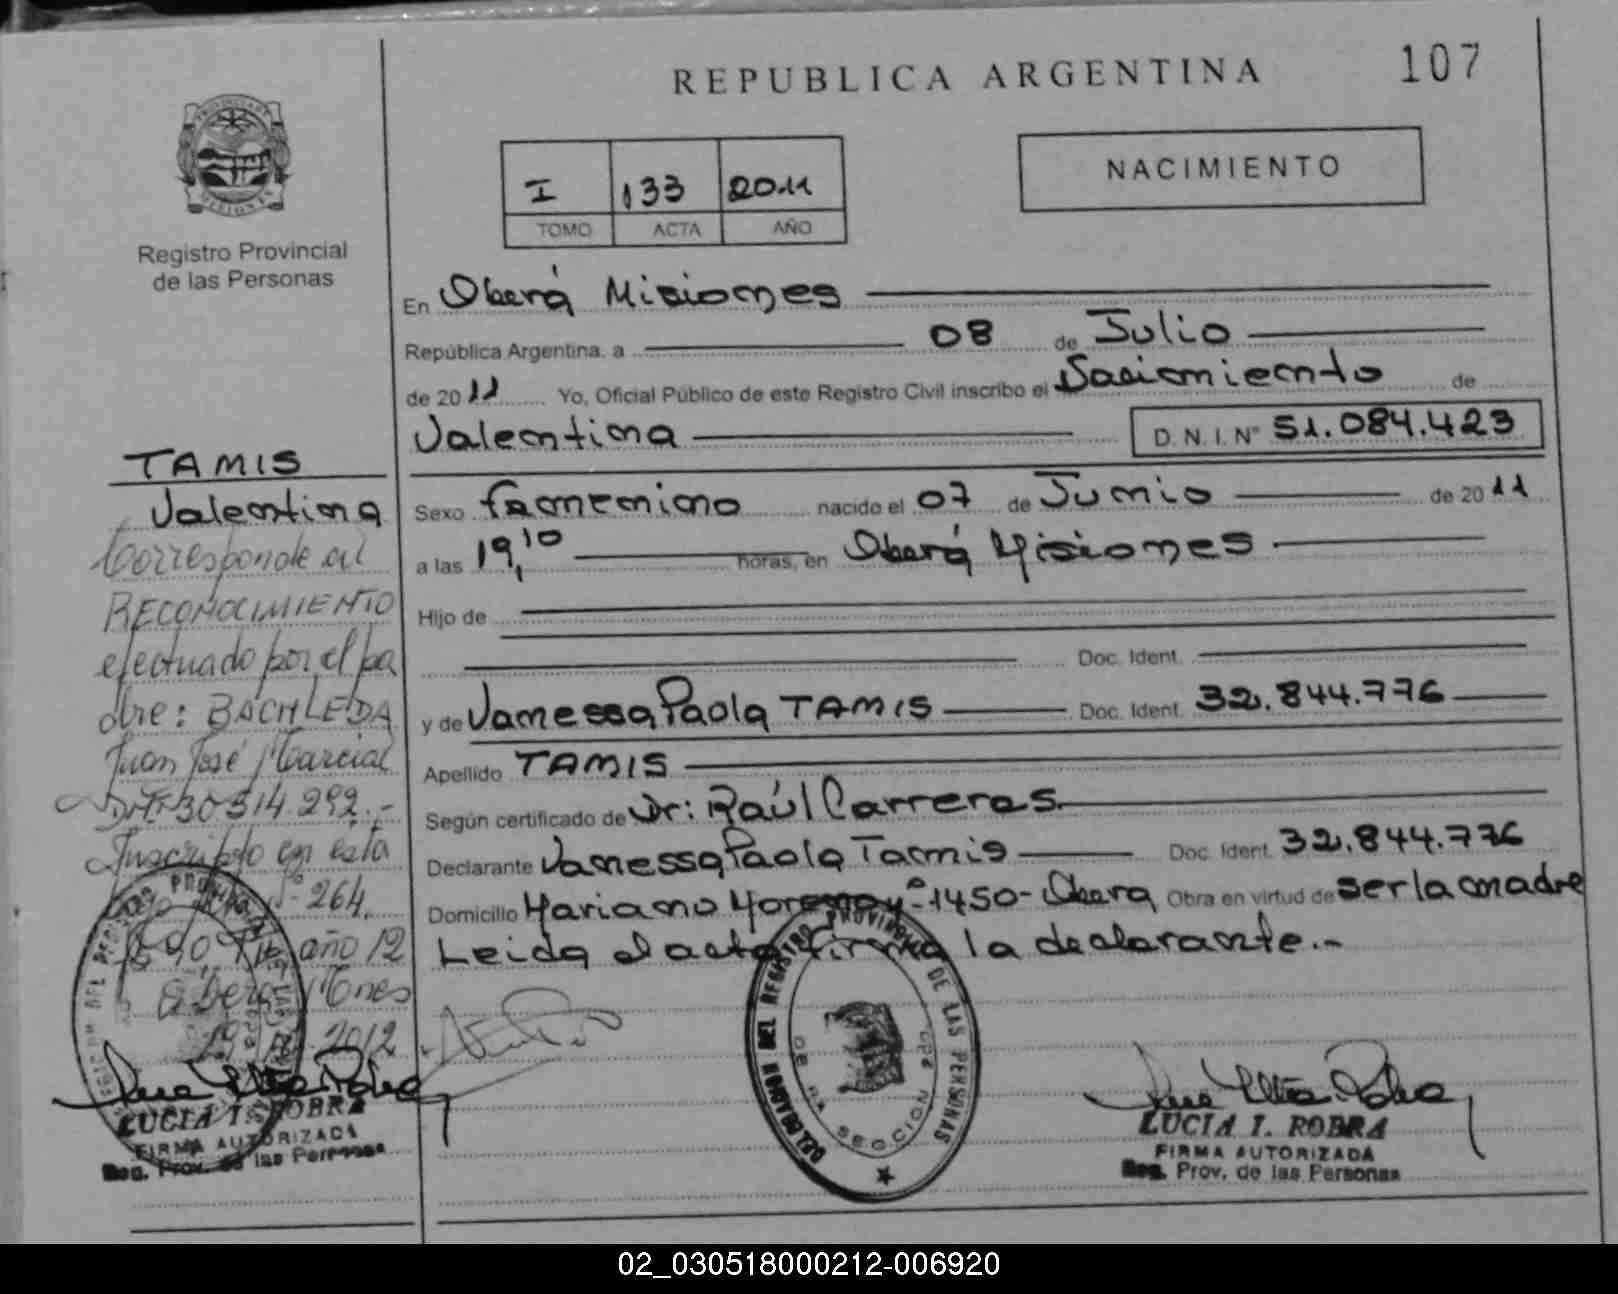 REPUBLICA ARGENTINA
107
PROVINCIA DE
MISIONES
Registro Provincial
de las Personas
I 133 2011
TOMO ACTA AÑO
NACIMIENTO
En Oberá Misiones
República Argentina, a 08 de Julio
de 2011 Yo, Oficial Público de este Registro Civil inscribo el Nacimiento de
Valentina D.N.I. Nº 51.084.423
Sexo femenino nacido el 07 de Junio de 2011
a las 19,10 horas, en Oberá Misiones
Hijo de
Doc. Ident.
y de Vanessa Paola TAMIS Doc. Ident. 32.844.776
Apellido TAMIS
Según certificado de Dr: Raúl Carreras
Declarante Vanessa Paola Tamis Doc. Ident. 32.844.776
Domicilio Mariano Moreno Nº 1450- Oberá Obra en virtud de ser la madre
Leida el acta firma la declarante.-
TAMIS
Valentina
Corresponde al
RECONOCIMIENTO
efectuado por el pa
dre: BACHLEDA
Juan José Marcial
DNI 30 314 292.-
Inscripto en esta
264.
año 12
Oberá Mnes
19 2012
LUCIA I. ROBRA
FIRMA AUTORIZADA
Reg. Prov. de las Personas
DELEGACION DEL REGISTRO PROVINCIAL DE LAS PERSONAS
SECCION
LUCIA I. ROBRA
FIRMA AUTORIZADA
Reg. Prov. de las Personas
02_030518000212-006920